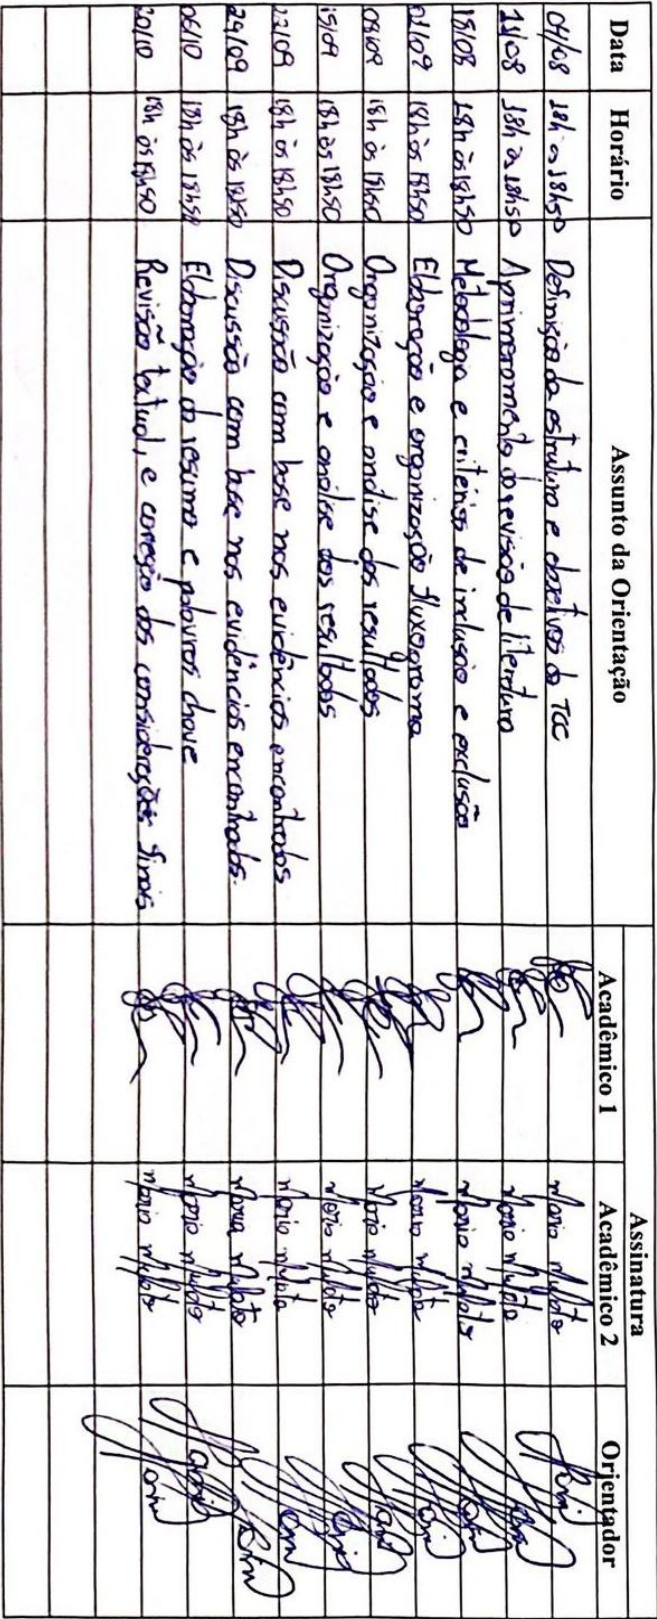 Data Horário Assunto da Orientação Assinatura
Acadêmico 1 Acadêmico 2 Orientador
04/08 18h às 18h50 Definição da estrutura e objetivos do TCC
11/08 18h às 18h50 Aprimoramento da revisão de literatura
18/08 18h às 18h50 Metodologia e critérios de inclusão e exclusão
01/09 18h às 18h50 Elaboração e organização fluxograma
08/09 18h às 18h50 Organização e análise dos resultados
15/09 18h às 18h50 Organização e análise dos resultados
22/09 18h às 18h50 Discussão com base nos evidências encontrados
29/09 18h às 18h50 Discussão com base nos evidências encontrados.
06/10 18h às 18h50 Elaboração do resumo e palavras chave
20/10 18h às 18h50 Revisão textual, e correção das considerações finais